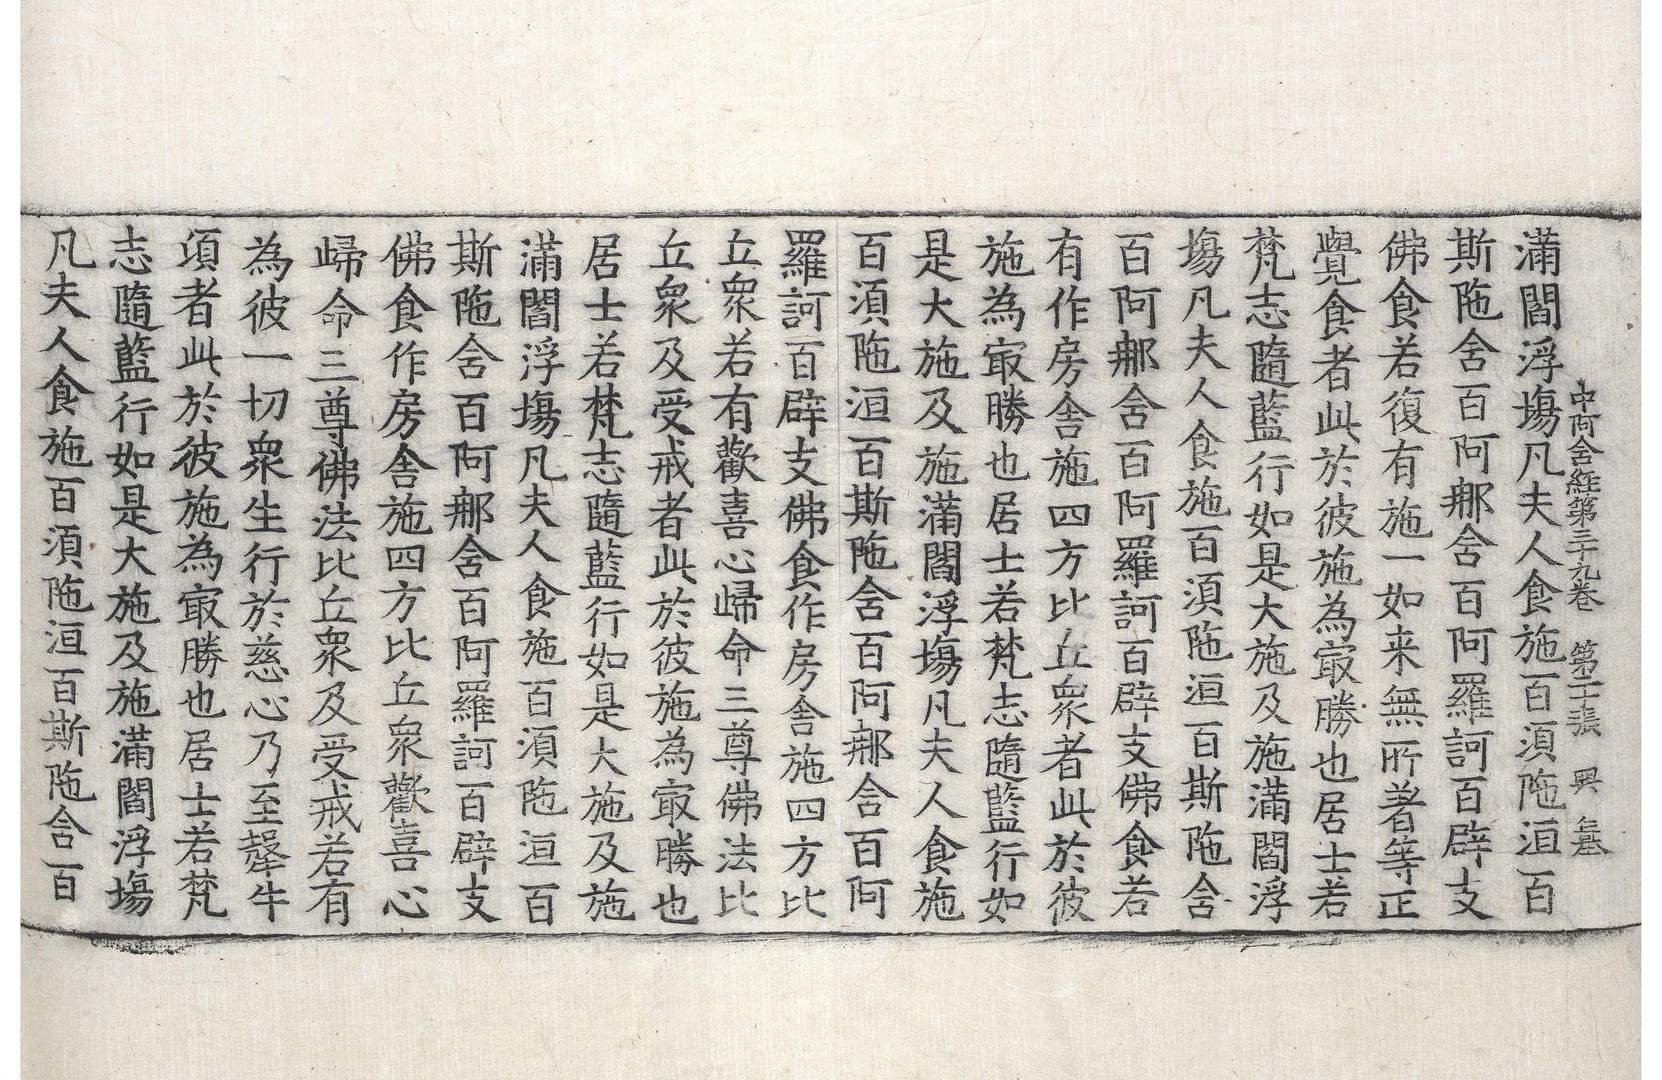 中阿含經第三十九卷 第二十張 興
滿閻浮塲凡夫人食施百湏陁洹百
斯陁含百阿那含百阿羅訶百辟支
佛食若復有施一如来無所著等正
覺食者此於彼施為冣勝也居士若
梵志隨藍行如是大施及施滿閻浮
塲凡夫人食施百湏陁洹百斯陁含
百阿那含百阿羅訶百辟支佛食若
有作房舍施四方比丘衆者此於彼
施為冣勝也居士若梵志隨藍行如
是大施及施滿閻浮塲凡夫人食施
百湏陁洹百斯陁含百阿那含百阿
羅訶百辟支佛食作房舍施四方比
丘衆若有歡喜心歸命三尊佛法比
丘衆及受戒者此於彼施為冣勝也
居士若梵志隨藍行如是大施及施
滿閻浮塲凡夫人食施百湏陁洹百
斯陁含百阿那含百阿羅訶百辟支
佛食作房舍施四方比丘衆歡喜心
歸命三尊佛法比丘衆及受戒若有
為彼一切衆生行於慈心乃至𤛗牛
頃者此於彼施為冣勝也居士若梵
志隨藍行如是大施及施滿閻浮塲
凡夫人食施百湏陁洹百斯陁含百